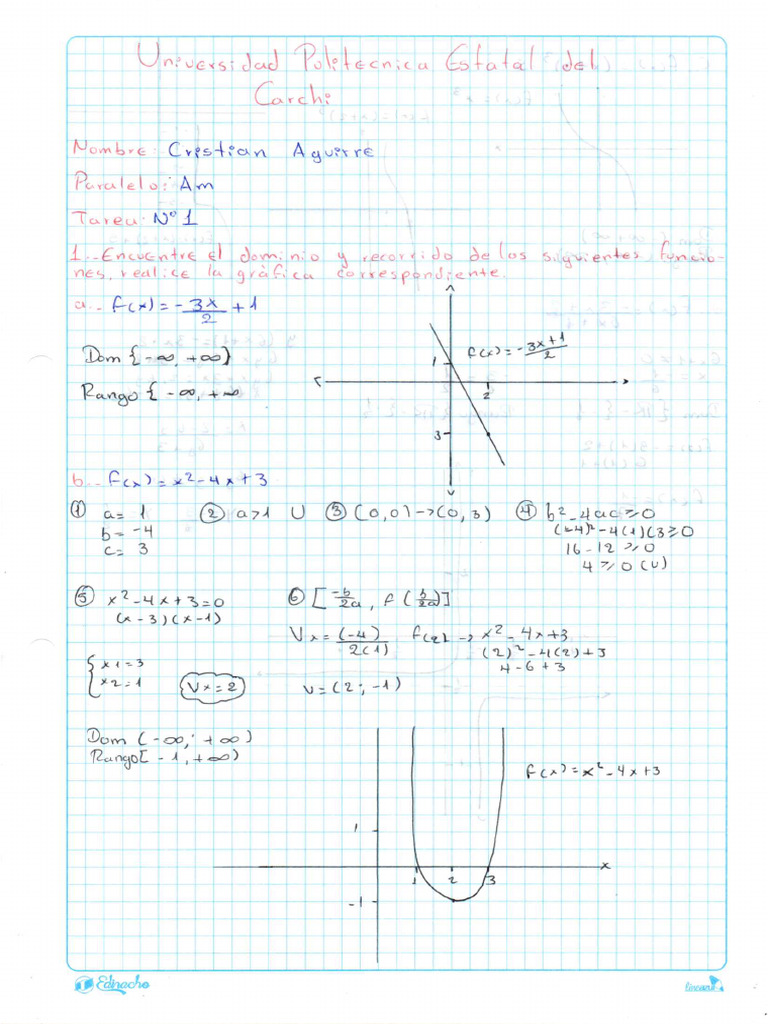 Universidad Politecnica Estatal del
Carchi
Nombre: Cristian Aguirre
Paralelo: Am
Tarea: Nº 1
1.- Encuentre el dominio y recorrido de los siguientes funcio-
nes, realice la gráfica correspondiente.
a.- f(x) = -3x/2 + 1
Dom {-∞, +∞}
Rango {-∞, +∞
f(x) = -3x+1/2
1
2
3
b.- f(x) = x² - 4x + 3
① a = 1
b = -4
c = 3
② a>1 U
③ (0,0) -> (0,3)
④ b² - 4ac ≥ 0
(-4)² - 4(1)(3 ≥ 0
16 - 12 ≥ 0
4 ≥ 0 (v)
⑤ x² - 4x + 3 = 0
(x-3)(x-1)
x1 = 3
x2 = 1
Vx = 2
⑥ [-b/2a, f(b/2a)]
Vx = (-4)/2(1) f(2) -> x² - 4x + 3
(2)² - 4(2) + 3
4 - 6 + 3
v = (2; -1)
Dom (-∞; +∞)
Rango [-1, +∞)
f(x) = x² - 4x + 3
1
1 2 3 x
-1
Edinacho